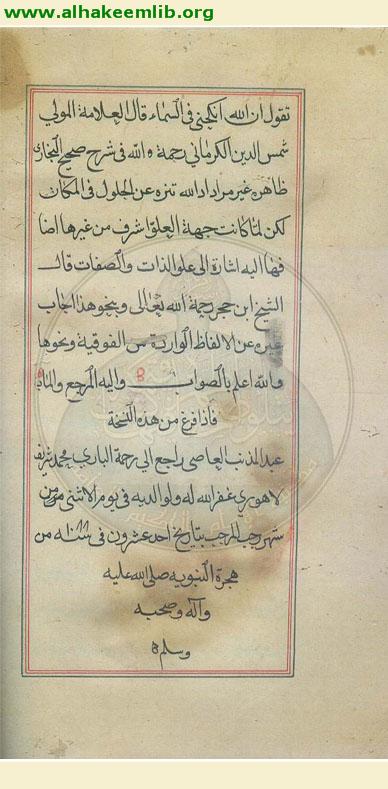 www.alhakeemlib.org
تقول ان الله انكحني في السماء قال العلامة المولي
شمس الدين الكرماني رحمة الله في شرح صحيح البخاري
ظاهره غير مراد اذ الله تنزه عن الحلول في المكان
لكن لما كانت جهة العلو اشرف من غيرها اضا
فها اليه اشارة الى علو الذات والصفات قال
الشيخ ابن حجر رحمة الله تعالى وبنحو هذا اجاب
غيره عن الالفاظ الواردة من الفوقية ونحوها
والله اعلم بالصواب واليه المرجع والماب
فاذا فرغ من هذه النسخة
عبد المذنب العاصي راجع الي رحمة الباري محمد شريف
لاهوري غفر الله له ولوالديه في يوم الاثنى من
شهر رجب المرجب بتاريخ احد عشرون في سنه من
هجرة النبويه صلى الله عليه
وآله وصحبه
وسلم